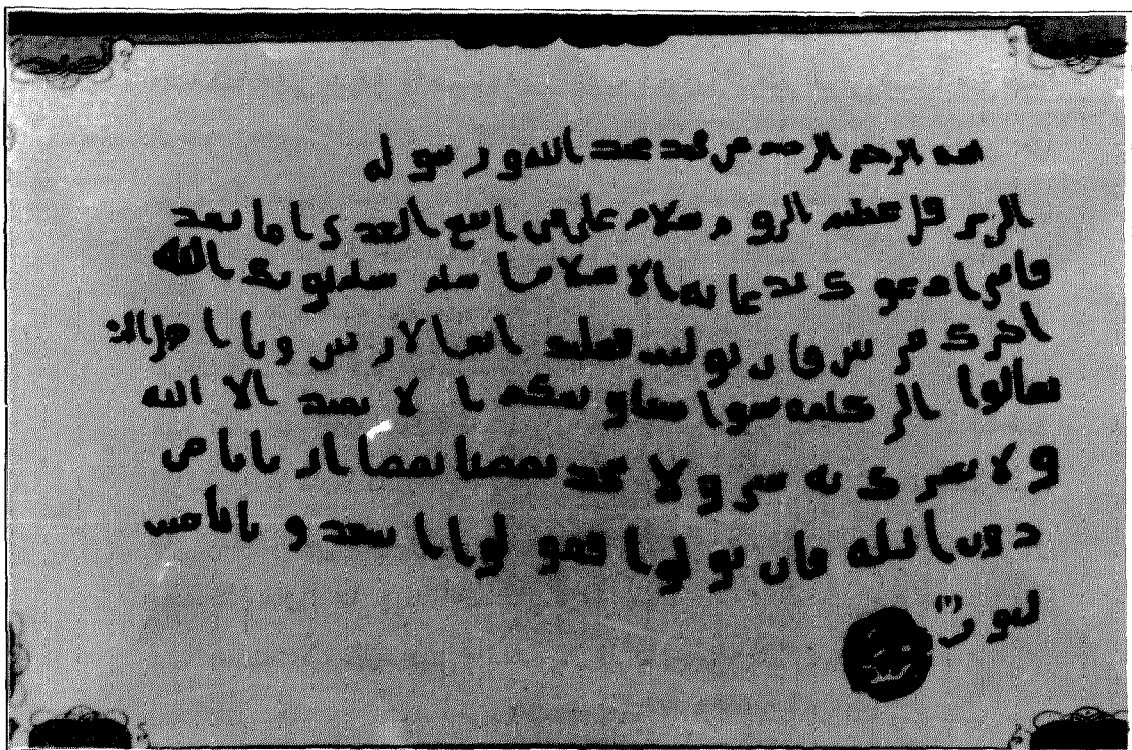 بسم الله الرحمن الرحيم من محمد عبد الله ورسوله
الى هرقل عظيم الروم سلام على من اتبع الهدى اما بعد
فاني ادعوك بدعاية الاسلام اسلم تسلم يوتك الله
اجرك مرتين فان توليت فعليك اثم الاريسين ويا اهل الكتا
ب تعالوا الى كلمة سوا بيننا وبينكم ا لا نعبد الا الله
ولا نشرك به شي ولا يتخذ بعضنا بعضا اربابا من
دون الله فان تولوا فقولوا اشهدوا بانا مس
لمون (١)